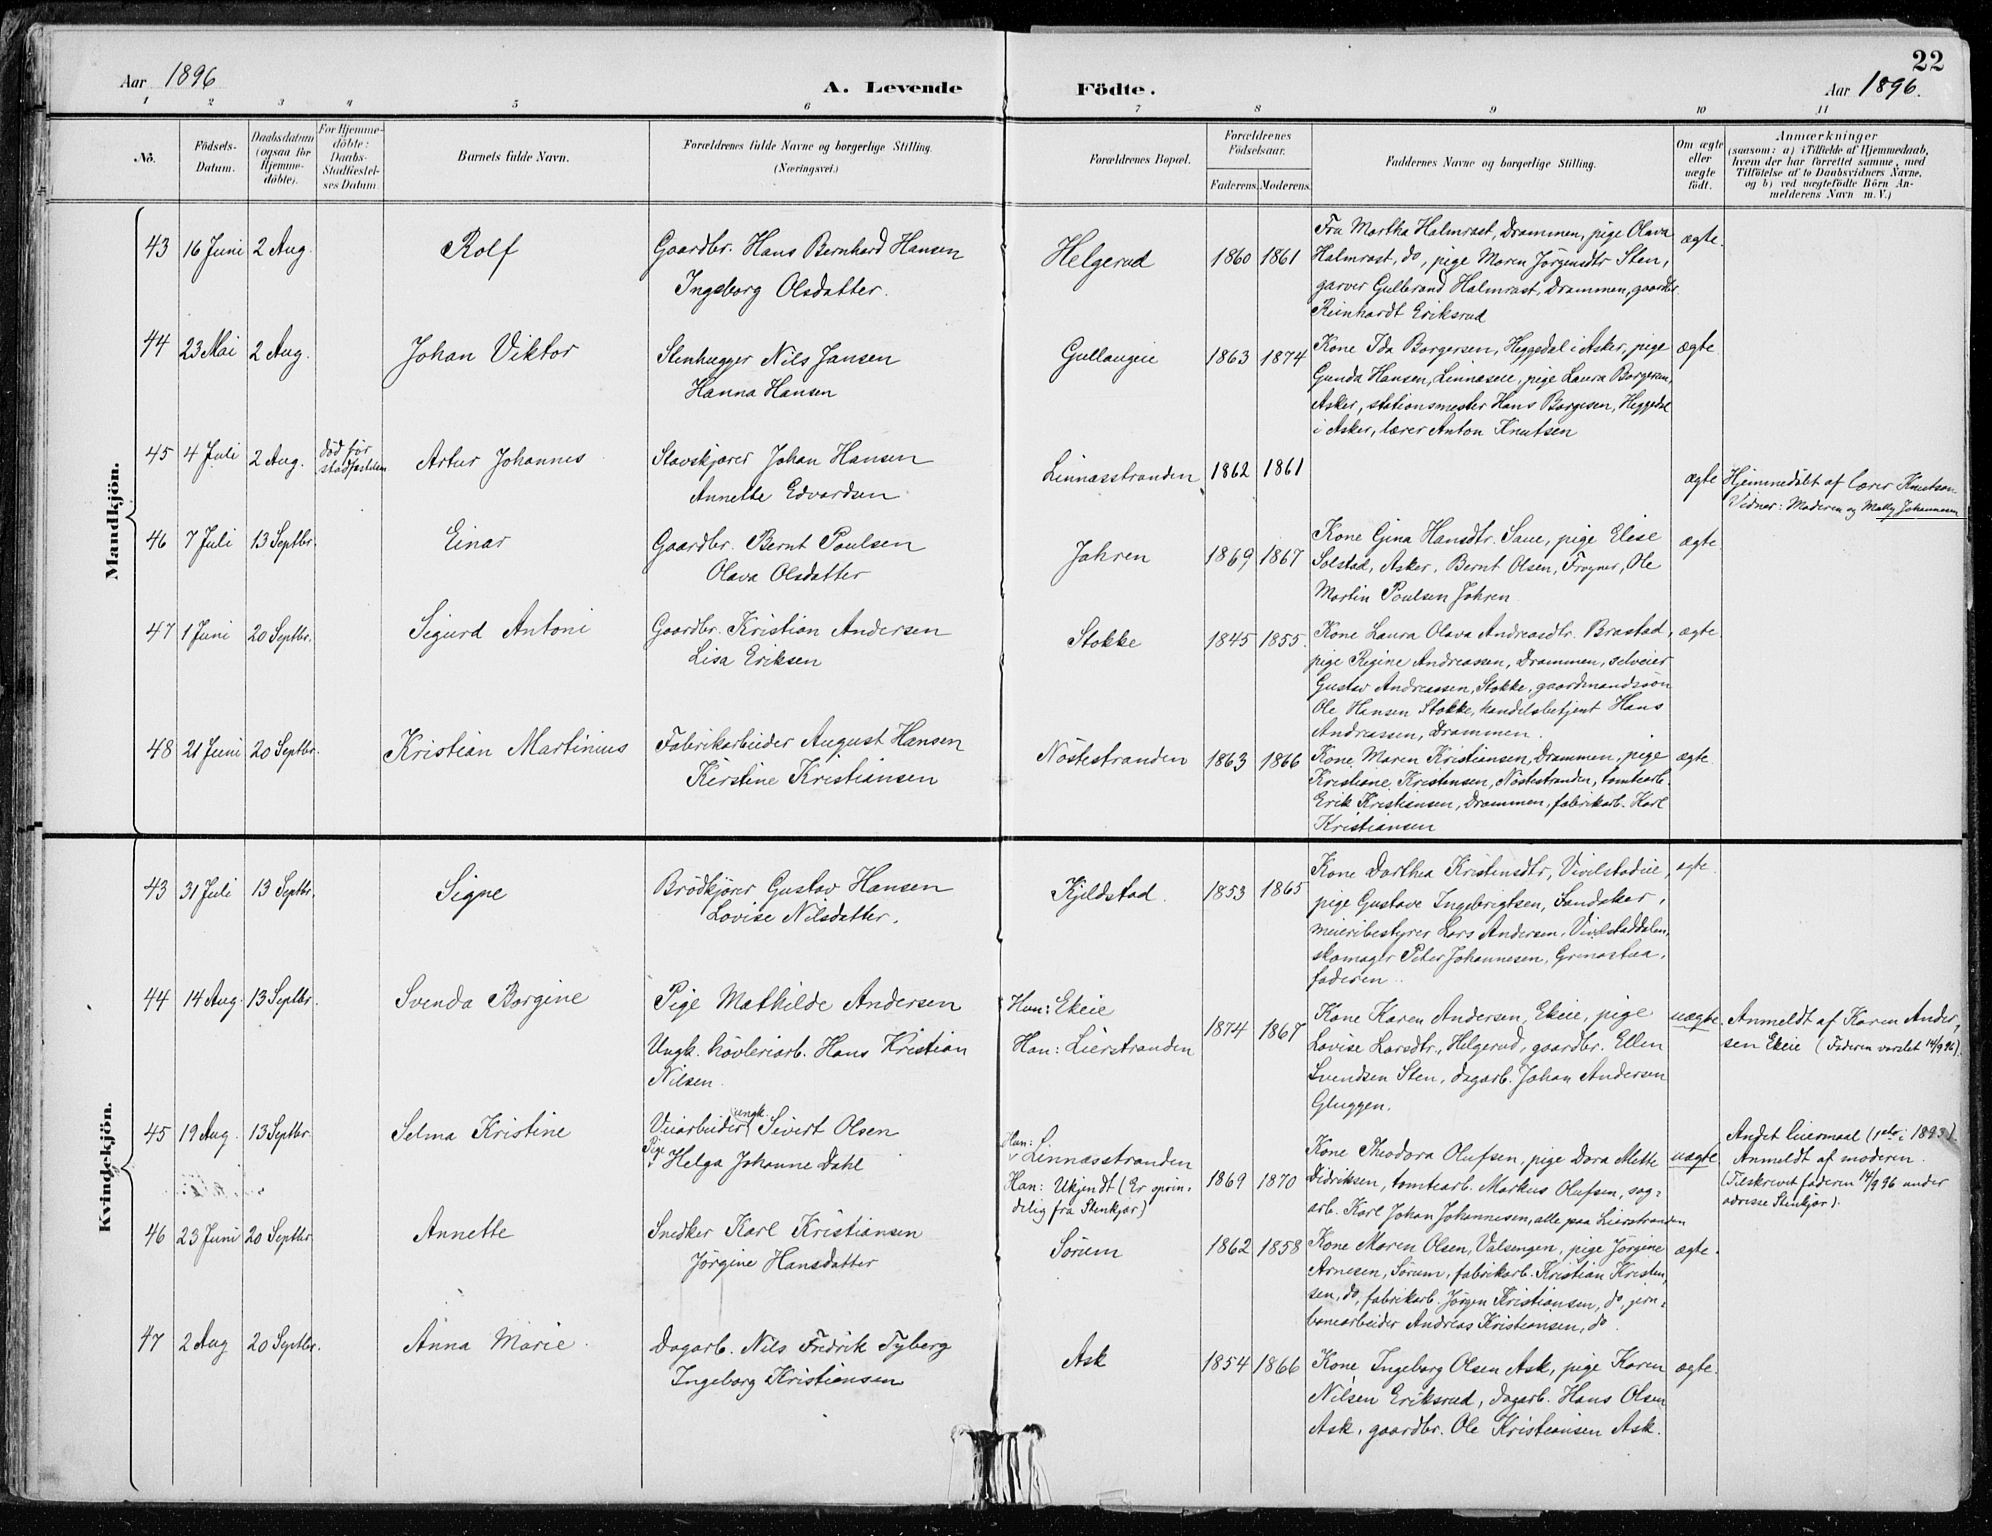 22
Aar 1896
A. Levende
Födte.
Aar 1896.
1 2 3 4 5 6 7 8 9 10 11
No.
Födsels-
Datum.
Daabsdatum
(ogsaa for
Hjemme-
döbte).
For Hjemme-
döbte:
Daabs-
Stadfæstel-
ses Datum.
Barnets fulde Navn.
Forældrenes fulde Navne og borgerlige Stilling.
(Næringsvei.)
Forældrenes Bopæl.
Forældrenes
Födselsaar.
Faderens. Moderens.
Faddernes Navne og borgerlige Stilling.
Om ægte
eller
uægte
födt.
Anmærkninger
(saasom: a) i Tilfælde af Hjemmedaab,
hvem der har forrettet samme, med
Tilföielse af to Daabsvidners Navne,
og b) ved uægtefödte Börn An-
melderens Navn m. V.)
Mandkjön.
43 16 Juni 2 Aug. Rolf
Gaardbr. Hans Bernhard Hansen
Ingeborg Olsdatter.
Helgerud 1860 1861
Fru Martha Halmrast, Drammen, pige Olava
Halmrast, do, pige Maren Jörgensdtr Sten,
garver Gulbrand Halmrast, Drammen, gaardbr.
Reinhardt Eriksrud
ægte.
44 23 Mai 2 Aug. Johan Viktor
Stenhugger Nils Jansen
Hanna Hansen
Gullaugeie 1863 1874
Kone Ida Borgersen, Heggedal i Asker, pige
Gunda Hansen, Linnæseie, pige Laura Borgersen,
Asker, stationsmester Hans Borgesen, Heggedal
i Asker, lærer Anton Knutsen
ægte
45 4 Juli 2 Aug. död för
stadfæstelsen
Artur Johannes
Stavskjærer Johan Hansen
Annette Edvardsen
Linnæsstranden 1862 1861
ægte
Hjemmedöbt af lærer Knutsen
Vidner: Moderen og Mally Johannesen
46 7 Juli 13 Septbr. Einar
Gaardbr. Bernt Poulsen
Olava Olsdatter
Jahren 1869 1867
Kone Gina Hansdtr. Saue, pige Elise
Solstad, Asker. Bernt Olsen, Frogner, Ole
Martin Poulsen Jahren
ægte
47 1 Juni 20 Septbr. Sigurd Antoni
Gaardbr. Kristian Andersen
Lisa Eriksen
Stokke 1845 1855.
Kone Laura Olava Andreasdtr. Brastad,
pige Regine Andreassen, Drammen, selveier
Gustav Andreassen, Stokke, gaardmandssön
Ole Hansen Stokke, handelsbetjent Hans
Andreassen, Drammen.
ægte
48 21 Juni 20 Septbr. Kristian Martinius
Fabrikarbeider August Hansen
Kirstine Kristiansen
Nöstestranden 1863 1866
Kone Maren Kristiansen, Drammen, pige
Kristiane Kristensen, Nöstestranden, tomtearb.
Erik Kristiansen, Drammen, fabrikarb. Karl
Kristiansen
ægte.
Kvindekjön.
43 31 Juli 13 Septbr. Signe
Brödkjörer Gustav Hansen
Lovise Nilsdatter.
Kjeldstad. 1853 1865
Kone Darthea Kristensdtr, Vivelstadeie,
pige Gustave Ingebrigtsen, Sandaker,
meieribestyrer Lars Andersen, Vivelstaddalen,
skomager Peter Johannesen, Grinastua,
faderen.
egte.
44 14 Aug. 13 Septbr. Svenda Borgine
Pige Mathilde Andersen
Ungk. hövleriarb. Hans Kristian
Nilsen.
Hun: Ekeie
Han: Lierstranden
1874 1867
Kone Karen Andersen, Ekeie, pige
Lovise Larsdtr., Helgerud, gaardbr. Ellen
Svendsen Sten, dagarb. Johan Andersen
Gluggen.
uægte
Anmeldt af Karen Ander-
sen Ekeie (Faderen varslet 14/9 96).
45 19 Aug. 13 Septbr. Selma Kristine
Veiarbeider, ungk. Sivert Olsen
Pige Helga Johanne Dahl
Hun: Linnæsstranden
Han: Ukjendt (Er oprin-
delig fra Stenkjær)
1869 1870
Kone Theodora Olufsen, pige Dora Mette
Didriksen, tomtearb. Markus Olufsen, sag-
arb. Karl Johan Johannesen, alle paa Lierstranden
uægte
Andet leiermaal (1ste i 1893).
Anmeldt af moderen.
(Tilskrevet faderen 14/9 96 under
adresse Stenkjær).
46 23 Juni 20 Septbr. Annette
Snedker Karl Kristiansen
Jörgine Hansdatter
Sörum 1862 1858
Kone Maren Olsen, Valsengen, pige Jörgine
Arnesen, Sörum, fabrikarb. Kristian Kristen-
sen, do, fabrikarb. Jörgen Kristiansen, do, jern-
banearbeider Andreas Kristiansen, do.
ægte.
47 2 Aug 20 Septbr. Anna Marie.
Dagarb. Nils Fredrik Tyberg
Ingeborg Kristiansen
Ask 1854 1866
Kone Ingeborg Olsen Ask, pige Karen
Nilsen Eriksrud, dagarb. Hans Olsen
Ask, gaardbr. Ole Kristiansen Ask.
ægte.